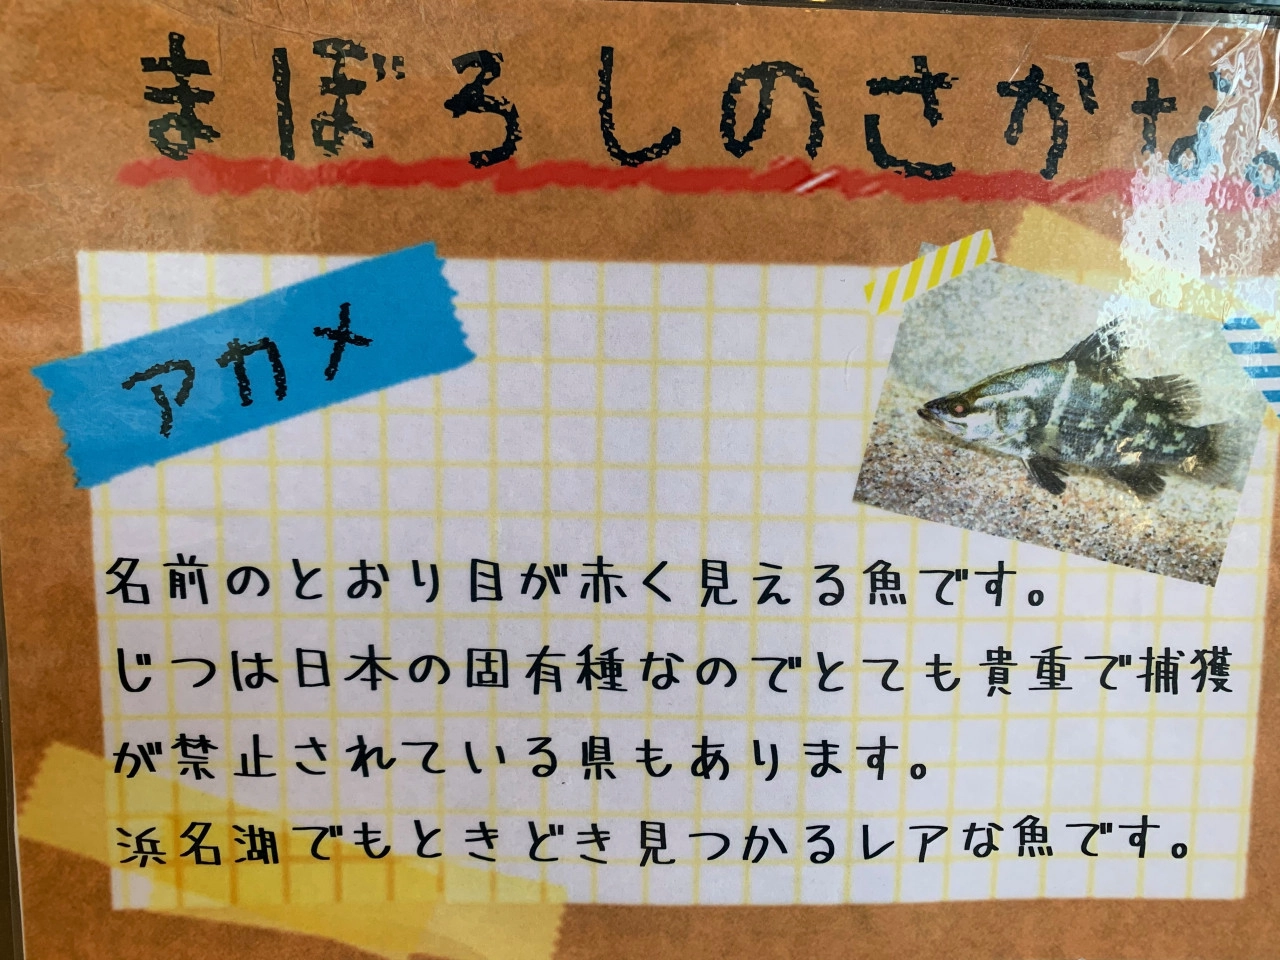 まぼろしのさかな。
アカメ
名前のとおり目が赤く見える魚です。
じつは日本の固有種なのでとても貴重で捕獲
が禁止されている県もあります。
浜名湖でもときどき見つかるレアな魚です。